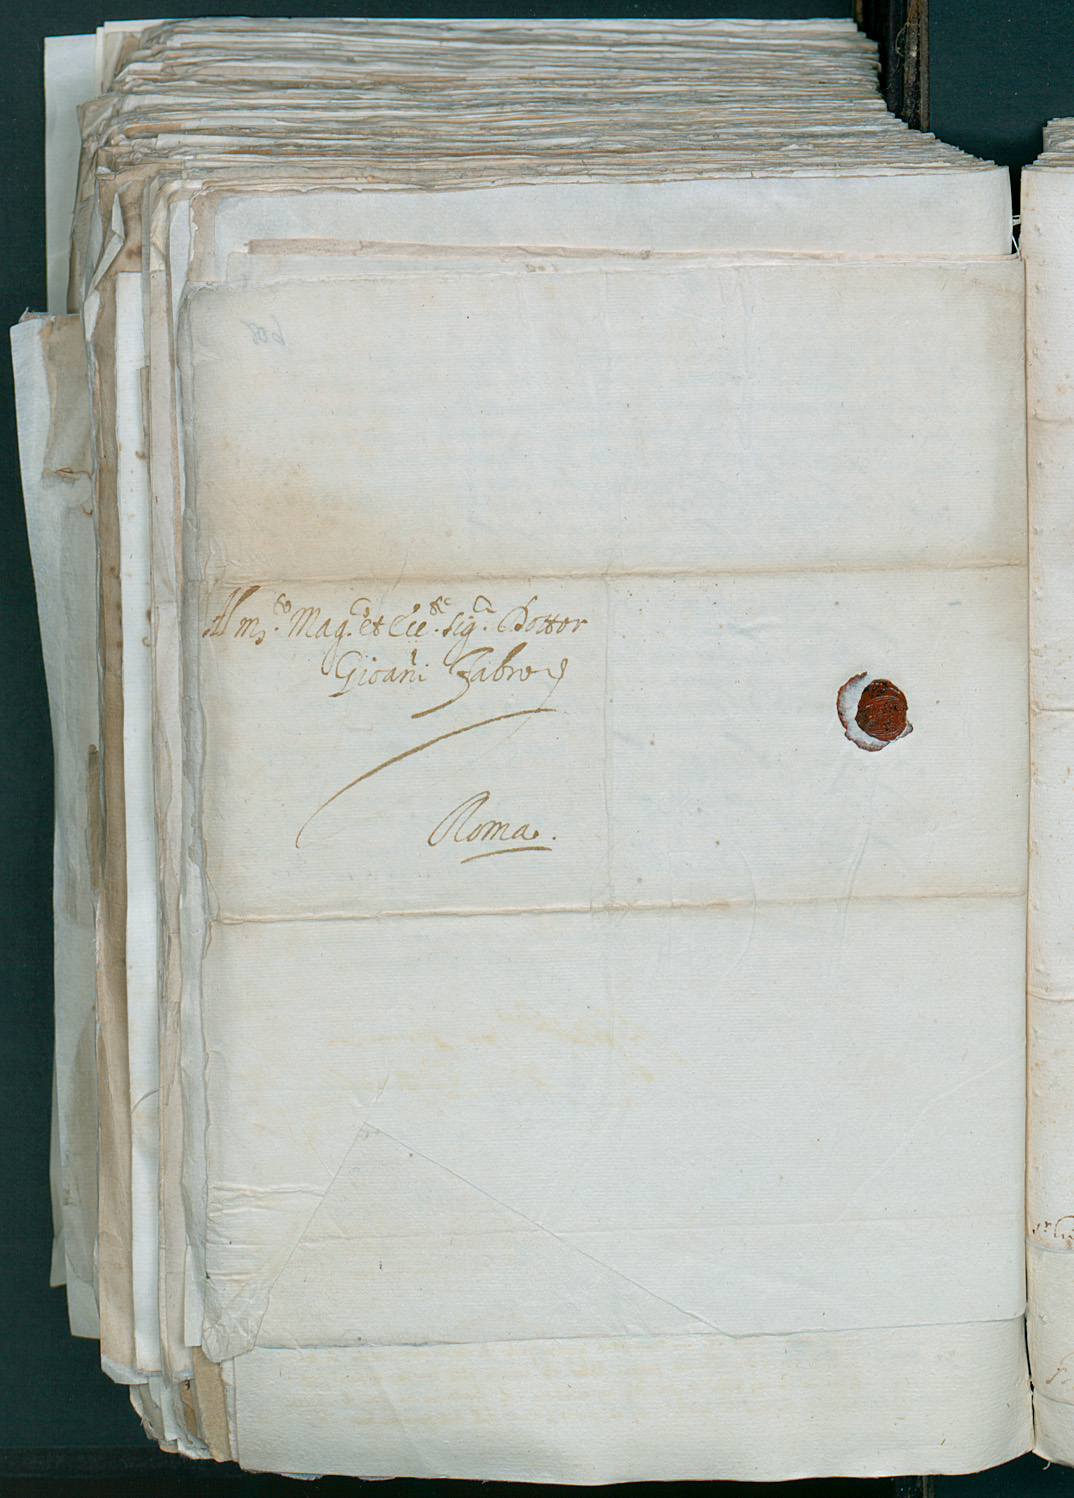 Al m.to Mag.co et Ecc.te Sig.r Dottor
Gioanni Fabro
Roma.